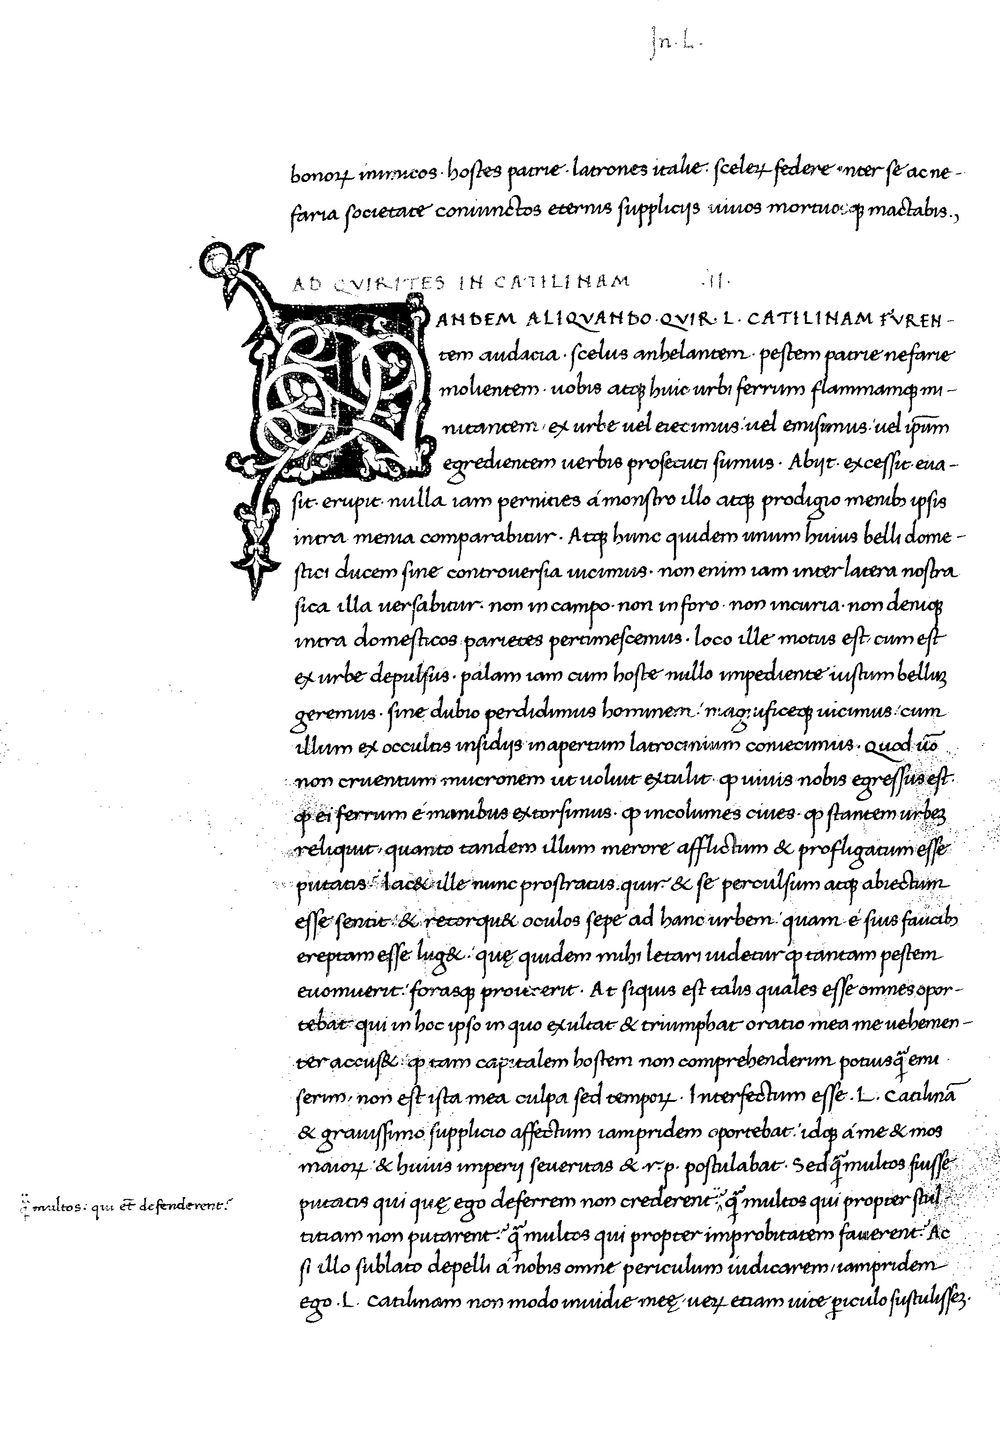 In. L.
bonoꝝ inimicos · hostes patrie · latrones italie · sceleꝝ federe inter se ac ne-
faria societate coniunctos eternis suppliciis uiuos mortuosqꝫ mactabis.,
AD QVIRITES IN CATILINAM .II.
TANDEM ALIQVANDO · QVIR · L · CATILINAM FVREN-
tem audacia · scelus anhelantem · pestem patrie nefarie
molientem · uobis atqꝫ huic urbi ferrum flammamqꝫ mi-
nitantem · ex urbe uel eiecimus · uel emisimus · uel ip̄um
egredientem uerbis prosecuti sumus · Abijt · excessit · eua-
sit · erupit · nulla iam pernicies á monstro illo atqꝫ prodigio menibꝫ ipsis
intra menia comparabitur · Atqꝫ hunc quidem unum huius belli dome-
stici ducem sine controuersia uicimus · non enim iam inter latera nostra
sica illa uersabitur · non in campo · non in foro · non in curia · non deniqꝫ
intra domesticos parietes pertimescemus · loco ille motus est · cum est
ex urbe depulsus · palam iam cum hoste nullo impediente iustum bellūꝫ
geremus · sine dubio perdidimus hominem · magnificeqꝫ uicimus · cum
illum ex occultis insidijs in apertum latrocinium coniecimus · Quod ūo
non cruentum mucronem ut uoluit extulit · ꝙ uiuis nobis egressus est ·
ꝙ ei ferrum é manibus extorsimus · ꝙ incolumes ciues · ꝙ stantem urbeꝫ
reliquit · quanto tandem illum merore afflictum & profligatum esse
putatis · Iac& ille nunc prostratus quir · & se perculsum atqꝫ abiectum
esse sentit · & retorqu& oculos sepe ad hanc urbem · quam é suis faucibꝫ
ereptam esse lug& · quę quidem mihi letari uidetur ꝙ tantam pestem
euomuerit · forasqꝫ proiecerit · At siquis est talis quales esse omnes opor-
tebat qui in hoc ipso in quo exultat & triumphat oratio mea me uehemen-
ter accus& · ꝙ tam capitalem hostem non comprehenderim potiusq̄ emi
serim · non est ista mea culpa sed tempoꝝ · Interfectum esse · L · Catilinā
& grauissimo supplicio affectum iampridem oportebat · idqꝫ á me & mos
maioꝝ & huius imperij seueritas & r · p · postulabat · Sed q̄ multos fuisse
putatis qui quę ego deferrem non crederent · q̄ multos qui propter stul
titiam non putarent · q̄ multos qui propter improbitatem fauerent · Ac
q̄ multos · qui et̄ defenderent ·
si illo sublato depelli á nobis omne periculum iudicarem · iampridem
ego · L · Catilinam non modo inuidie meę · ueꝝ etiam uite ꝑiculo sustulisseꝫ ·